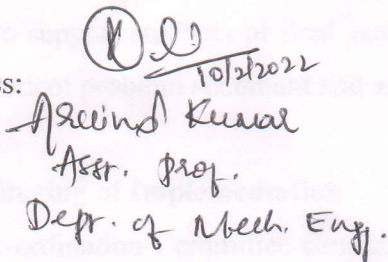 10/2/2022
ss:
Arvind Kumar
Asst. prof.
Dept. of Mech. Engg.